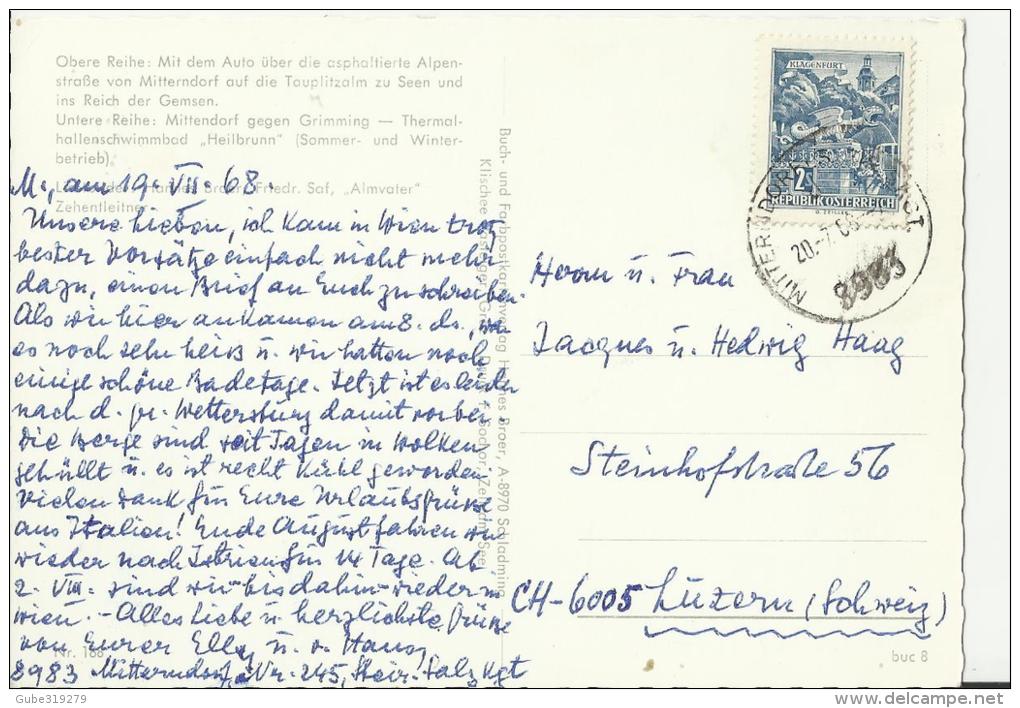 Obere Reihe: Mit dem Auto über die asphaltierte Alpen-
straße von Mitterndorf auf die Tauplitzalm zu Seen und
ins Reich der Gemsen.
Untere Reihe: Mittendorf gegen Grimming — Thermal-
hallenschwimmbad „Heilbrunn" (Sommer- und Winter-
betrieb).
Friedr. Saf, „Almvater"
Zehentleitner
M., am 19. VII. 68.
Unsere Lieben, ich kam in Wien trotz
bester Vorsätze einfach nicht mehr
dazu, einen Brief an Euch zu schreiben.
Als wir hier ankamen am 8. ds., war
es noch sehr heiß u. wir hatten noch
einige schöne Badetage. Jetzt ist es leider
nach d. gr. Wettersturz damit vorbei.
Die Berge sind seit Tagen in Wolken
gehüllt u. es ist recht kühl geworden.
Vielen Dank für Eure Urlaubsgrüsse
aus Italien! Ende August fahren wir
wieder nach Istrien für 14 Tage. Ab
2. VIII. sind wir bis dahin wieder in
Wien. - Alles Liebe u. herzlichste Grüsse
von Eurer Elly u. v. Hans,
8983 Mitterndorf, Nr. 245, Steir. Salzkgt
Nr. 168
Buch- und Farbpostkartenverlag Hannes Broer, A-8970 Schladming
KLAGENFURT
2S
REPUBLIK ÖSTERREICH
MITTERNDORF
20.-7.68
8983
Herrn u. Frau
Jacques u. Hedwig Haag
Steinhofstraße 56
CH-6005 Luzern (Schweiz)
buc 8
Gube319279
www.delcampe.net